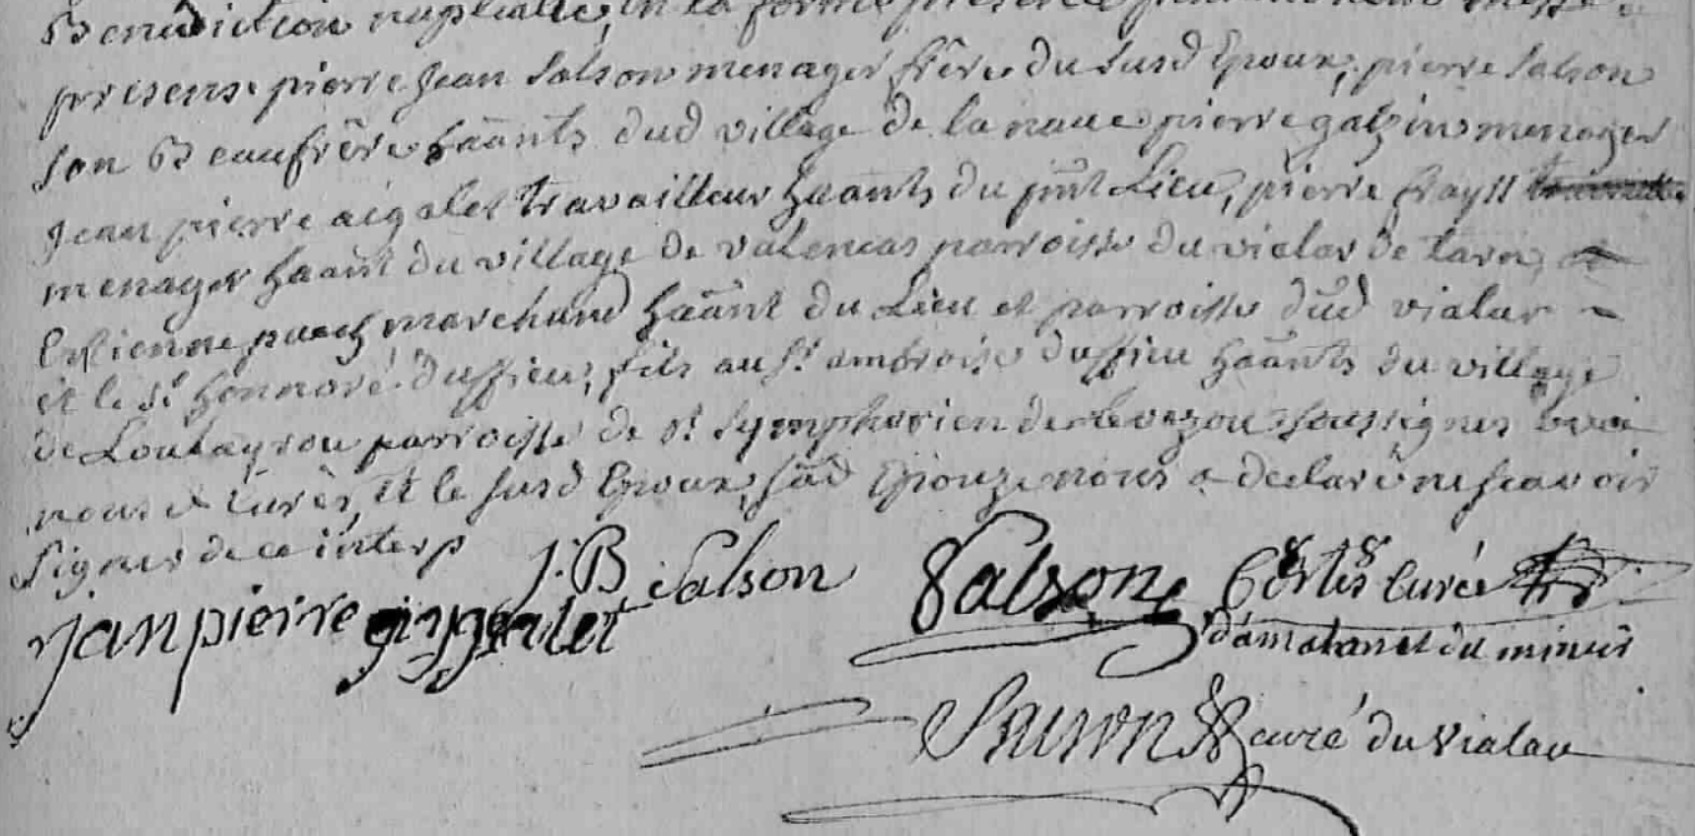 Benediction nuptialle, en la forme
presens pierre Jean Salson menager frère du susd Epoux, pierre Salson
son Beaufrère haânts dud village de la naue pierre galzin menager
Jean pierre aigalet travailleur haants du pnt Lieu, pierre frayss
menager haant du village de valencas parroisse du vialar de tarn,
Estienne puech marchand haânt du Lieu et parroisse dud vialar
et le Sr honnoré duffieu, fils au Sr ambroise duffieu haânts du village
de Loubayrou parroisse de st Symphorien de levezou soussignes
nous curès, et le susd Epoux, sad Epouze nous a declaré ne scavoir
signer de ce interp
J.B Salson Salson Cortes curé
jan pierre
curé du vialau